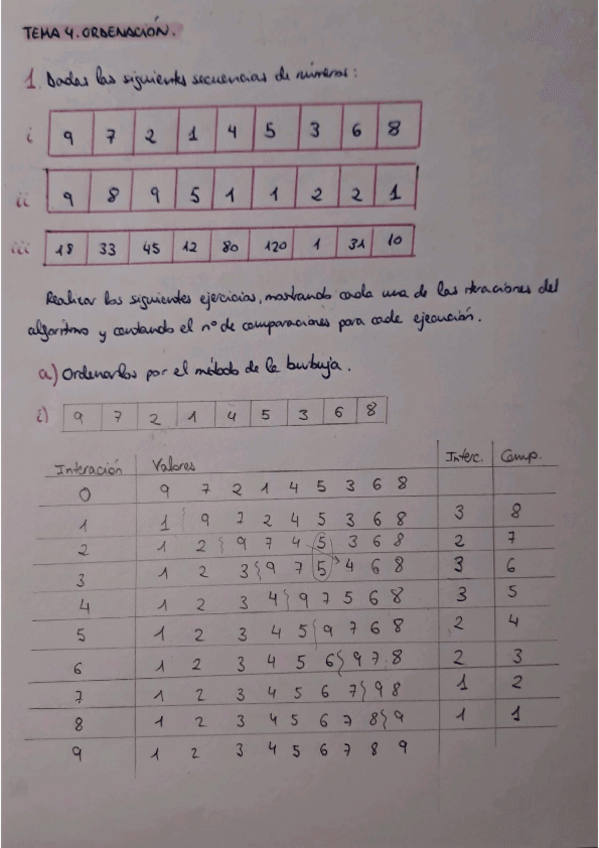 TEMA 4. ORDENACIÓN.
1. Dadas las siguientes secuencias de números:
i 9 7 2 1 4 5 3 6 8
ii 9 8 9 5 1 1 2 2 1
iii 18 33 45 12 80 120 1 31 10
Realizar los siguientes ejercicios, mostrando cada una de las iteraciones del
algoritmo y contando el nº de comparaciones para cada ejecución.
a) Ordenarlos por el método de la burbuja.
i) 9 7 2 1 4 5 3 6 8
Interación Valores Interc. Comp.
0 9 7 2 1 4 5 3 6 8
1 1 9 7 2 4 5 3 6 8 3 8
2 1 2 9 7 4 5 3 6 8 2 7
3 1 2 3 9 7 5 4 6 8 3 6
4 1 2 3 4 9 7 5 6 8 3 5
5 1 2 3 4 5 9 7 6 8 2 4
6 1 2 3 4 5 6 9 7 8 2 3
7 1 2 3 4 5 6 7 9 8 1 2
8 1 2 3 4 5 6 7 8 9 1 1
9 1 2 3 4 5 6 7 8 9